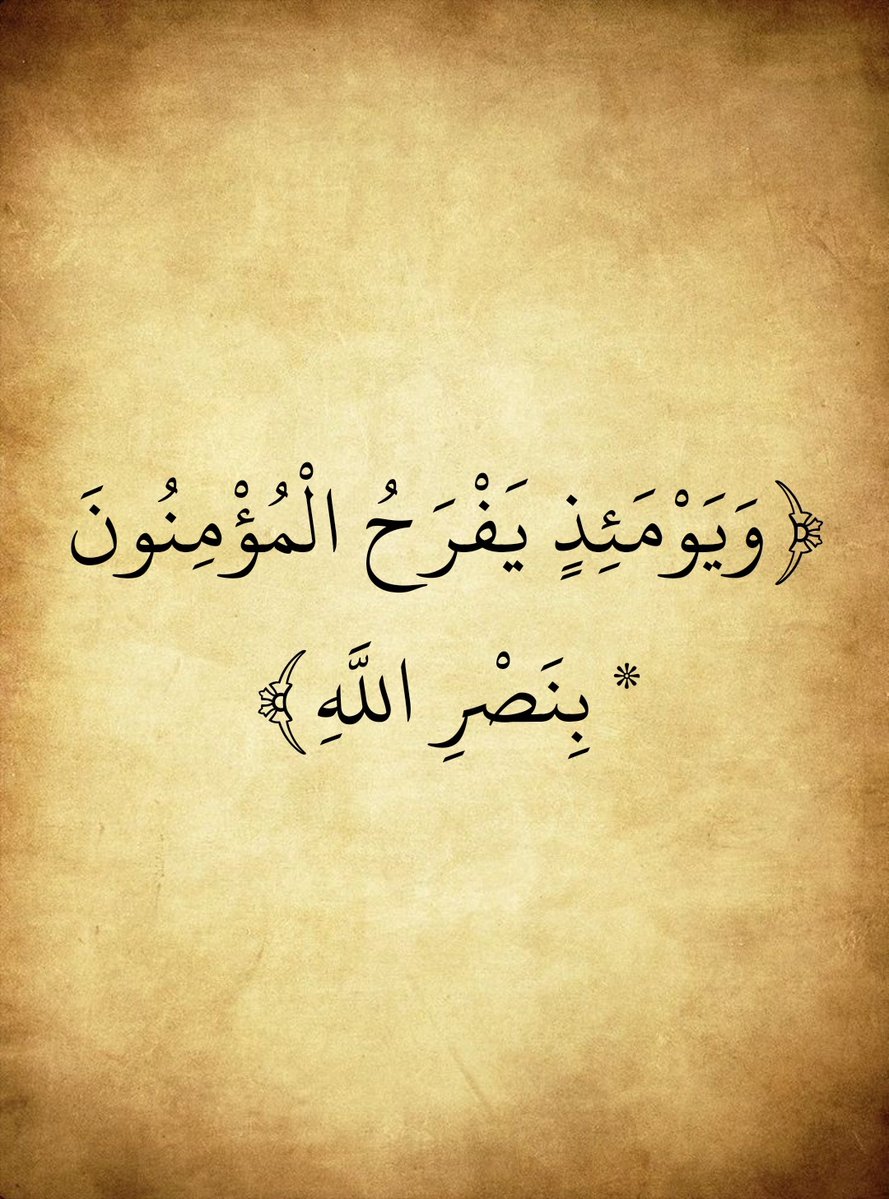 ﴿وَيَوْمَئِذٍ يَفْرَحُ الْمُؤْمِنُونَ
* بِنَصْرِ اللَّهِ﴾